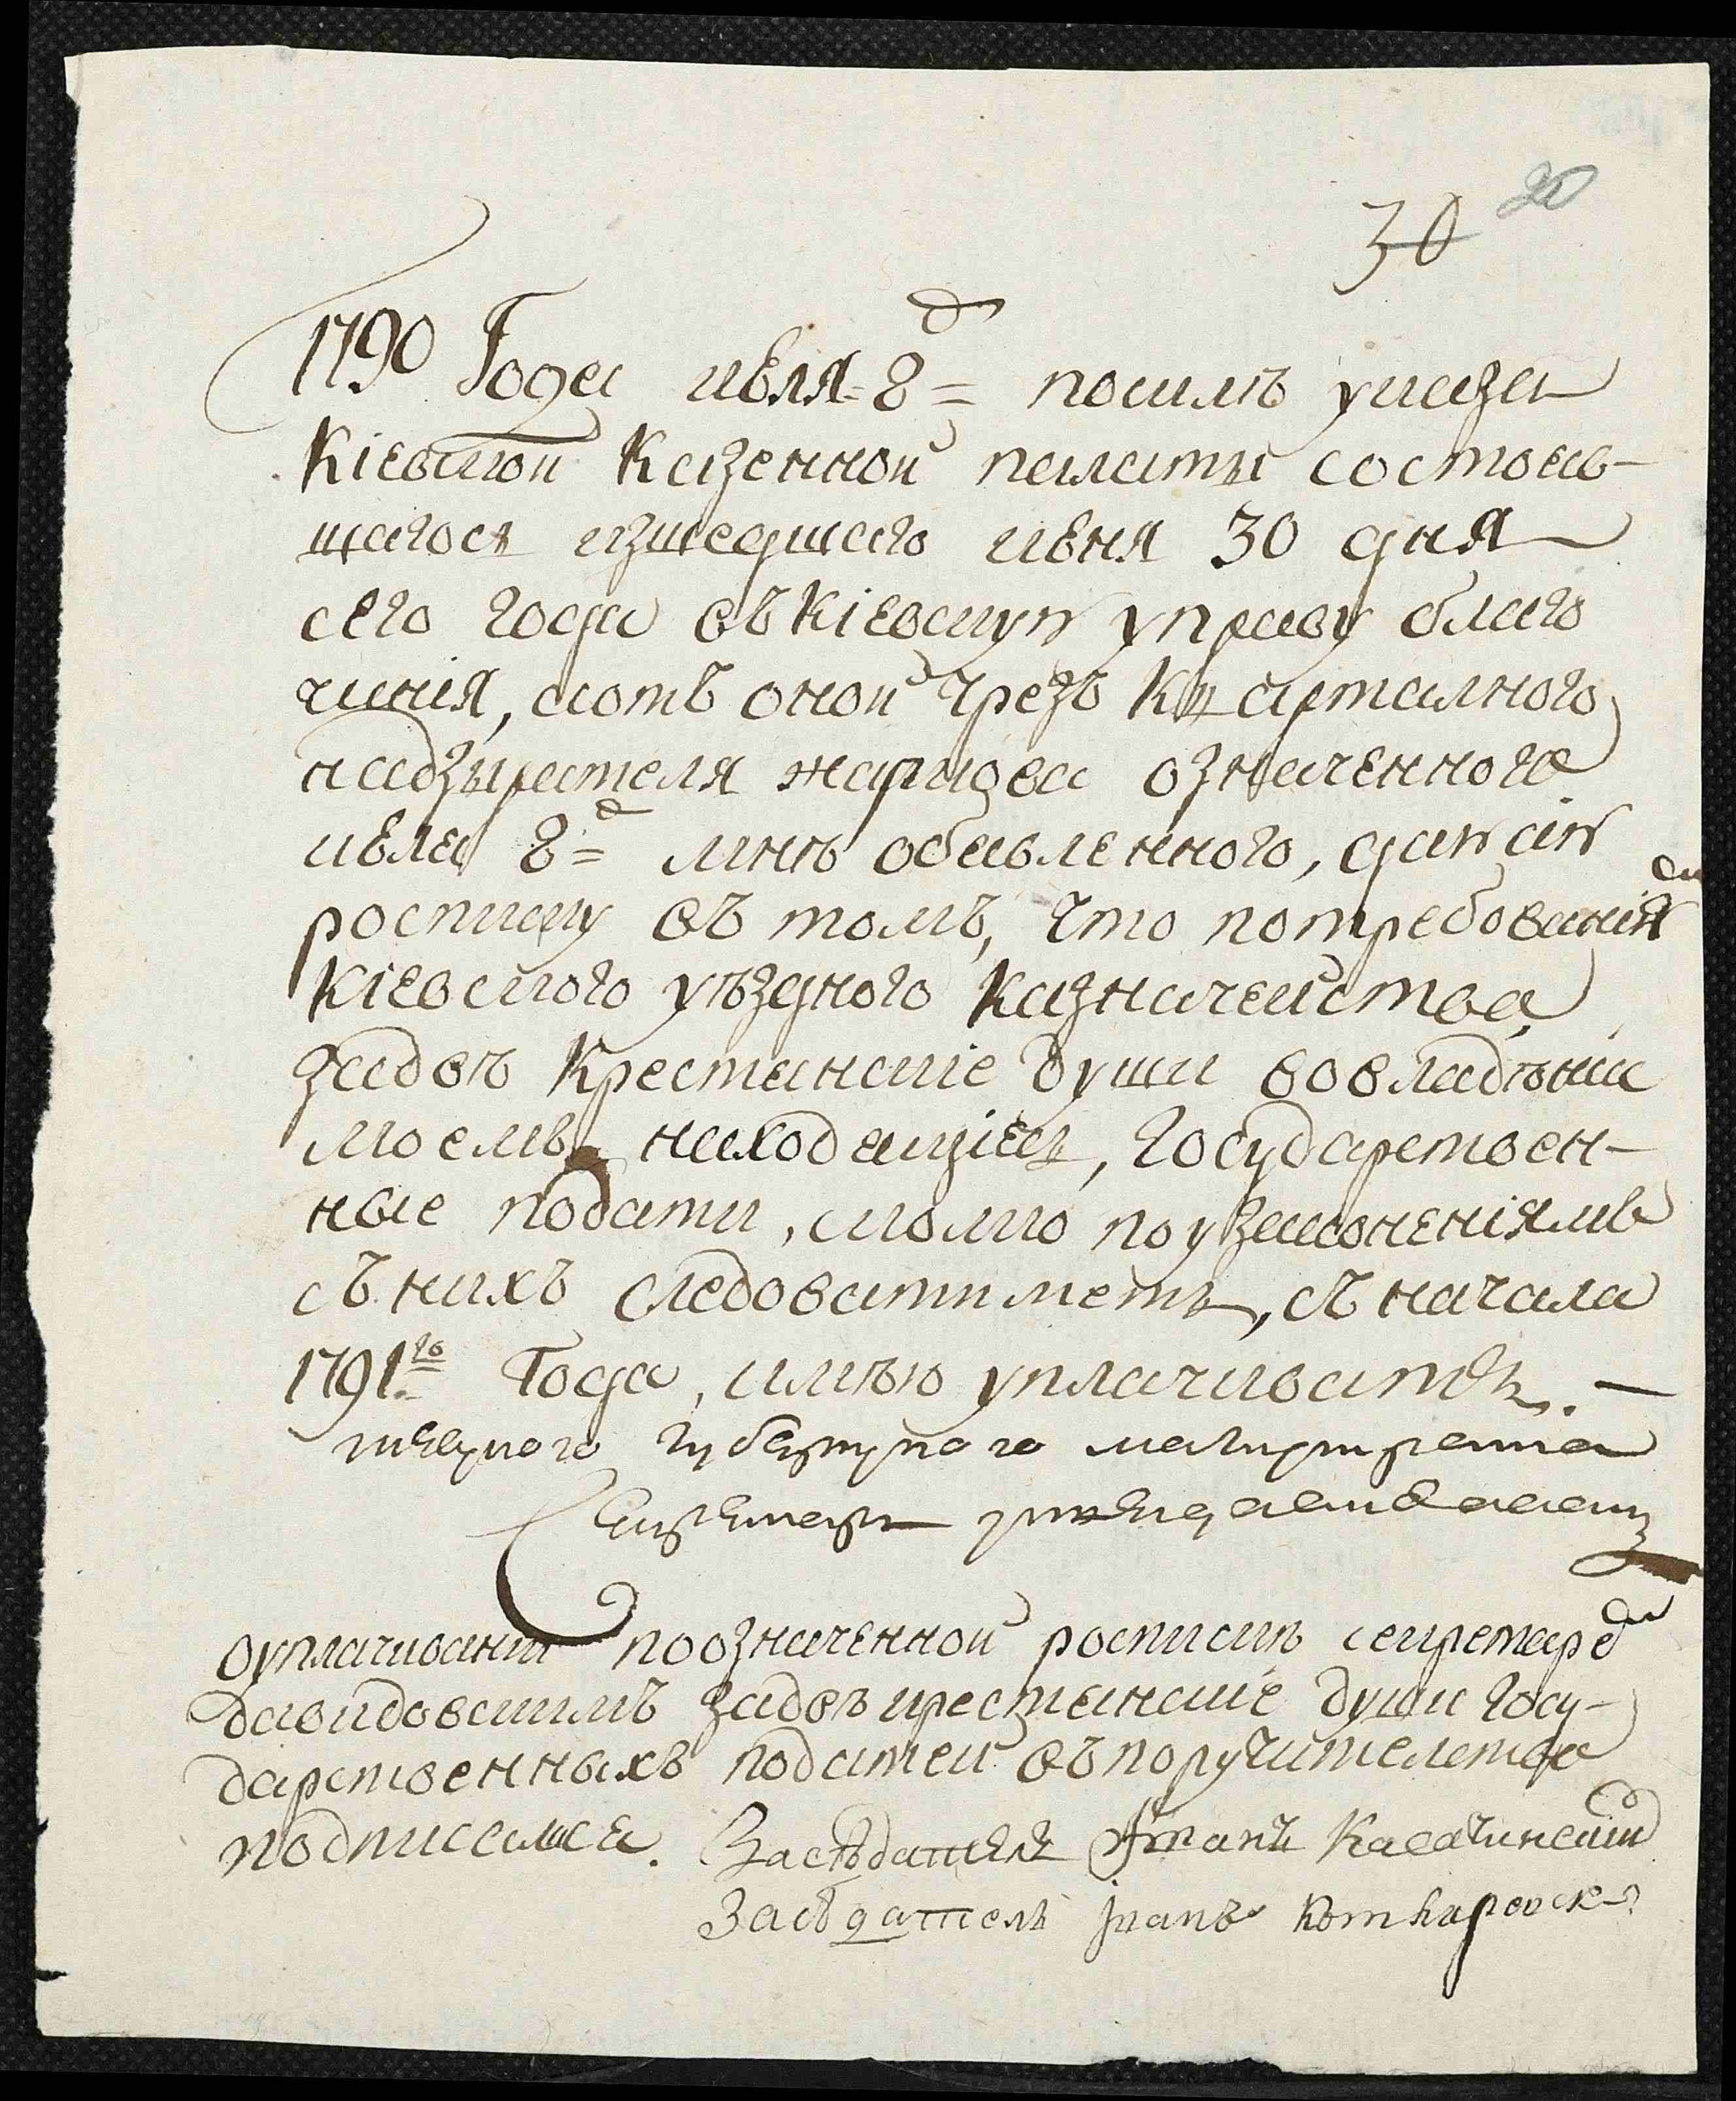 30 20
1790 Года июля 8 д посилѣ указа
Кіевской Казенной палаты состояв-
шагося изшедшаго июня 30 дня
сего года въ Кіевскую управу благо
чинія, а отъ оной чрезъ Квартального
надзырателя означенного
июля 8 д мнѣ обявленного, даю сію
росписку въ томъ, что по требованія
Кіевского уѣздного Казначейства
за двѣ Крестянскіе души во владѣнии
моемъ находящіеся, Государствен-
ные подати, сколко по узаконеніямъ
съ нихъ следоватиметь, съ начала
1791го Года, имѣю уплачивать. —
губернского магистрата
Секретарь
О уплачиваніи по означенной роспискѣ секретарем
давидовскимъ за двѣ крестянскіе души госу-
дарственныхъ податей въ поручителства
подписалися. Заседателя
Заседатель Іванъ